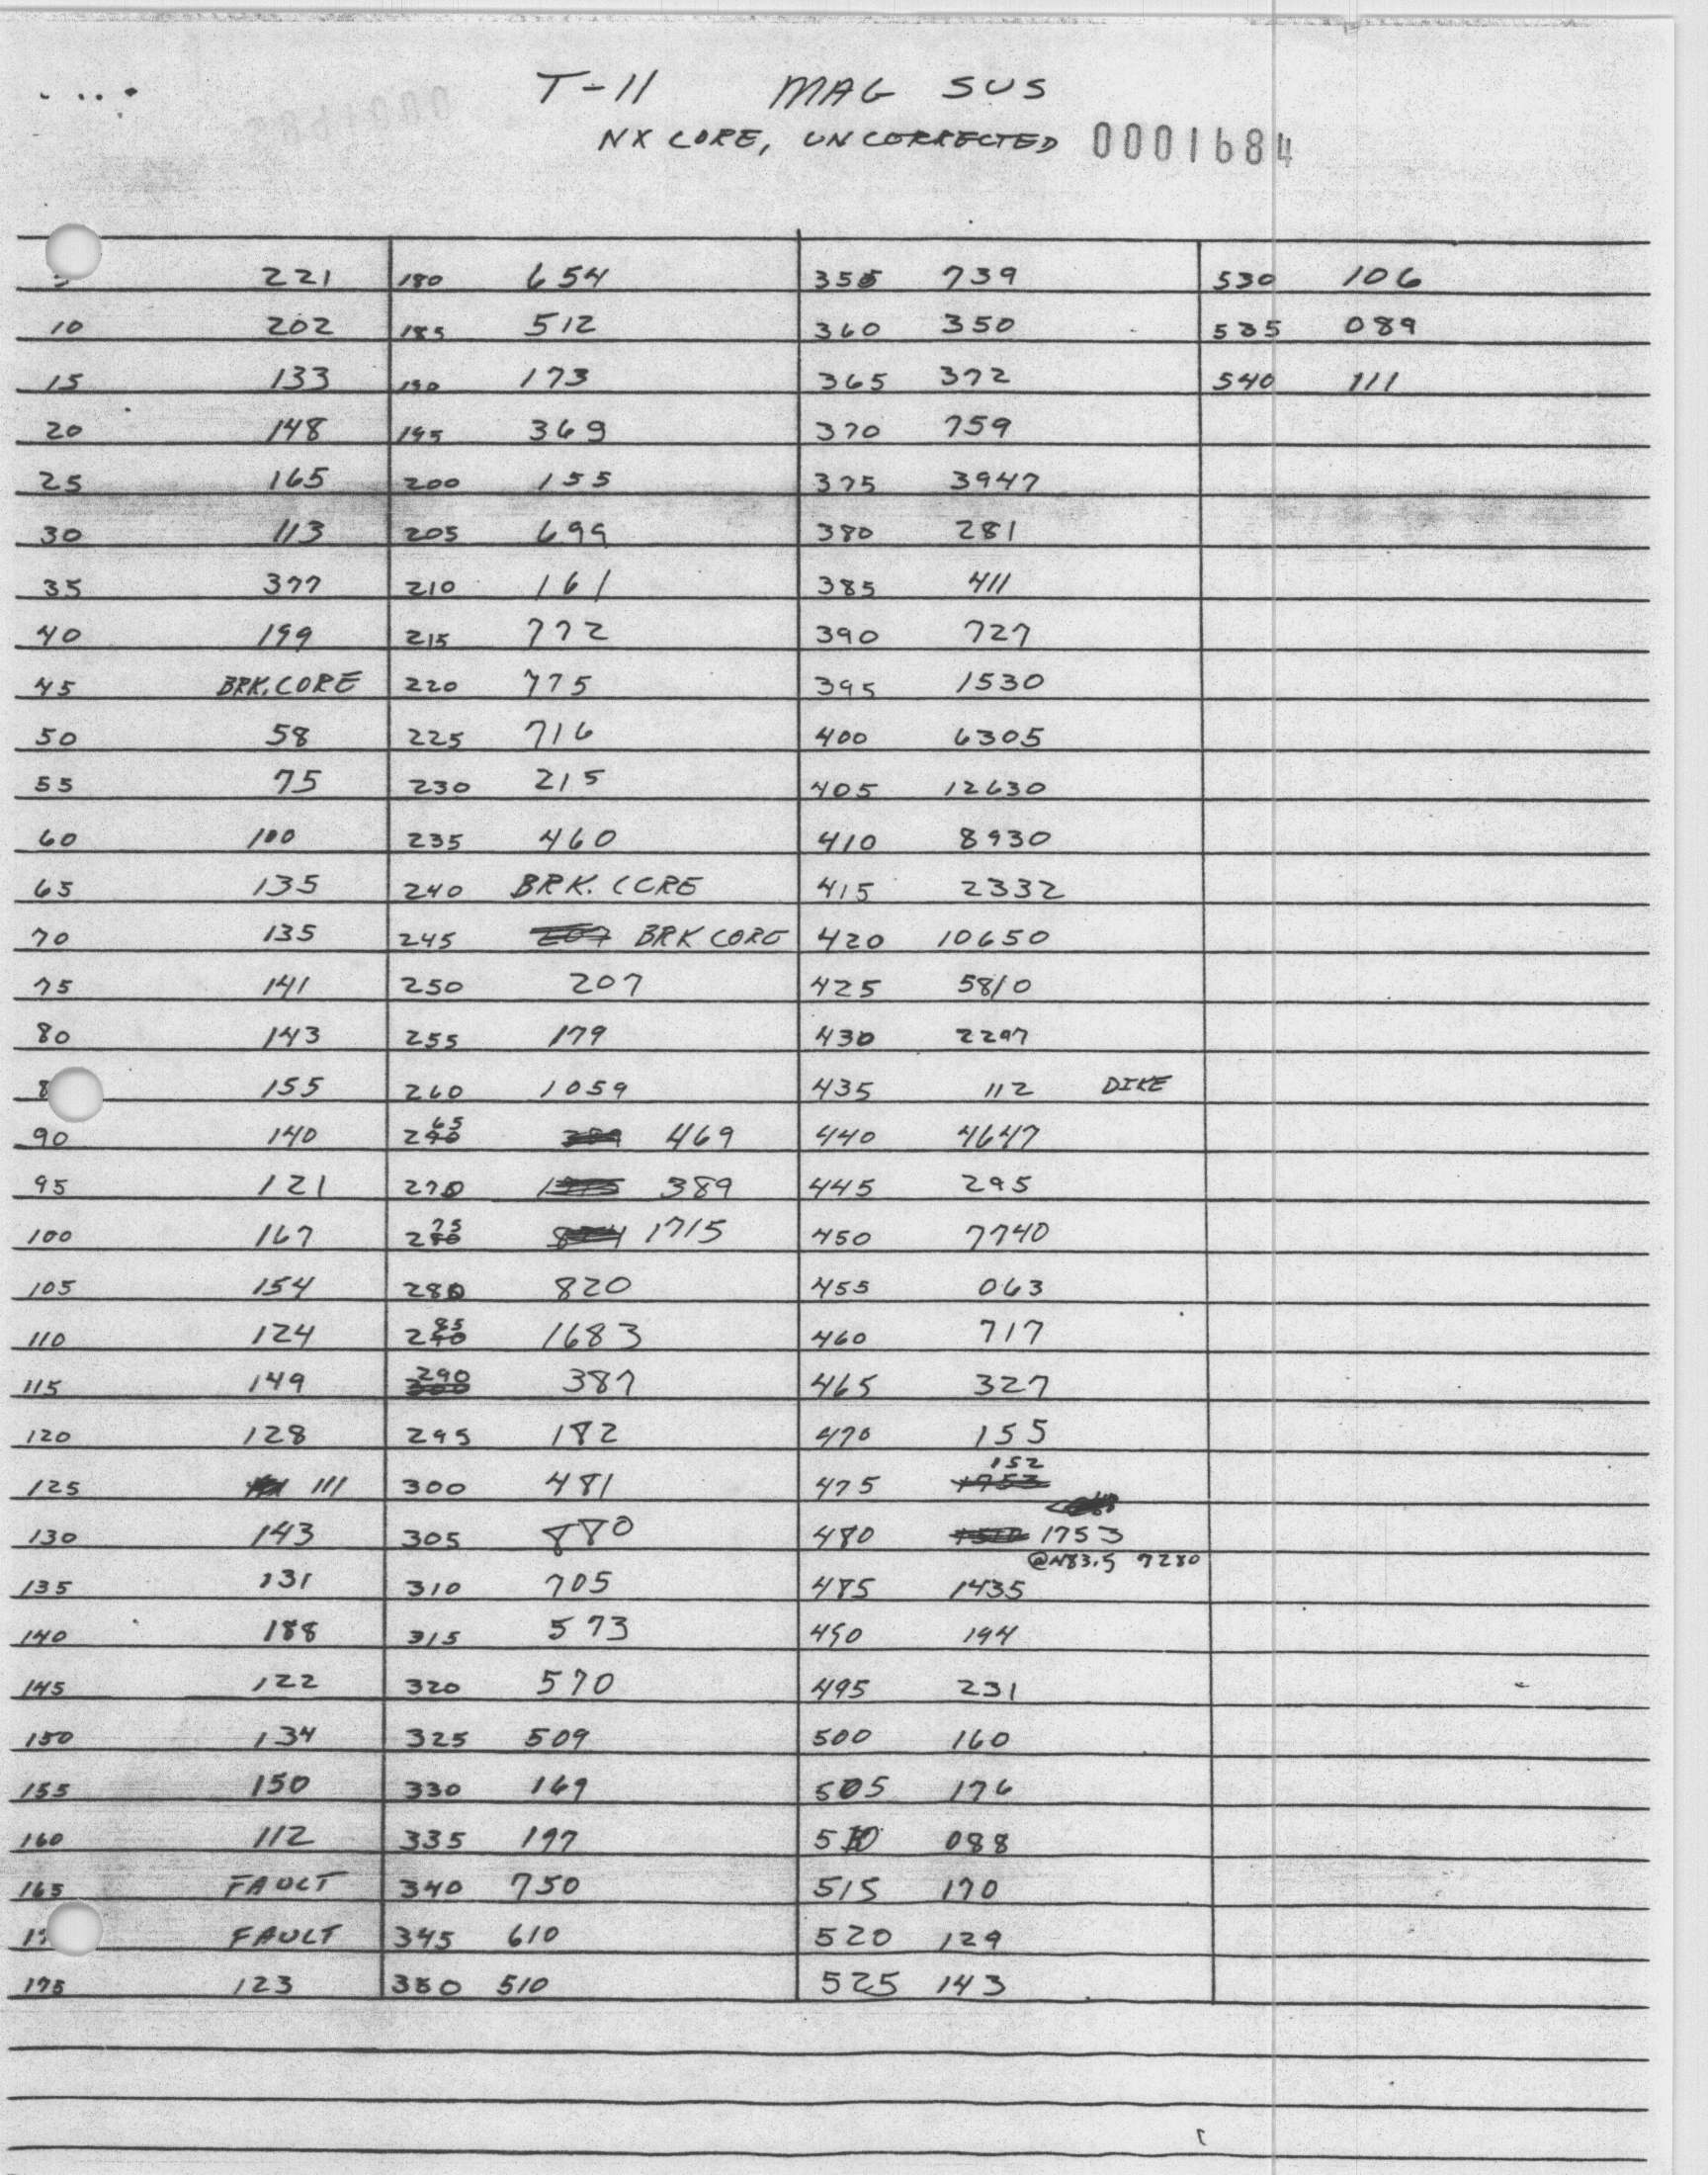 T-11 MAG SUS
NX CORE, UNCORRECTED 0001684
221 180 654 355 739 530 106
10 202 185 512 360 350 535 089
15 133 190 173 365 372 540 111
20 148 195 369 370 759
25 165 200 155 375 3947
30 113 205 699 380 281
35 377 210 161 385 411
40 199 215 772 390 727
45 BRK. CORE 220 775 395 1530
50 58 225 716 400 6305
55 75 230 215 405 12630
60 100 235 460 410 8930
65 135 240 BRK. CORE 415 2332
70 135 245 207 BRK CORE 420 10650
75 141 250 207 425 5810
80 143 255 179 430 2297
8 155 260 1059 435 112 DIKE
90 140 265 389 469 440 4647
95 121 270 389 445 295
100 167 275 1715 450 7740
105 154 280 820 455 063
110 124 285 1683 460 717
115 149 290 387 465 327
120 128 295 182 470 155
125 111 300 481 475 1753 152
130 143 305 880 480 1753
@483.5 7280
135 131 310 705 485 1435
140 188 315 573 490 194
145 122 320 570 495 231
150 134 325 509 500 160
155 150 330 169 505 176
160 112 335 197 510 088
165 FAULT 340 750 515 170
17 FAULT 345 610 520 129
175 123 350 510 525 143